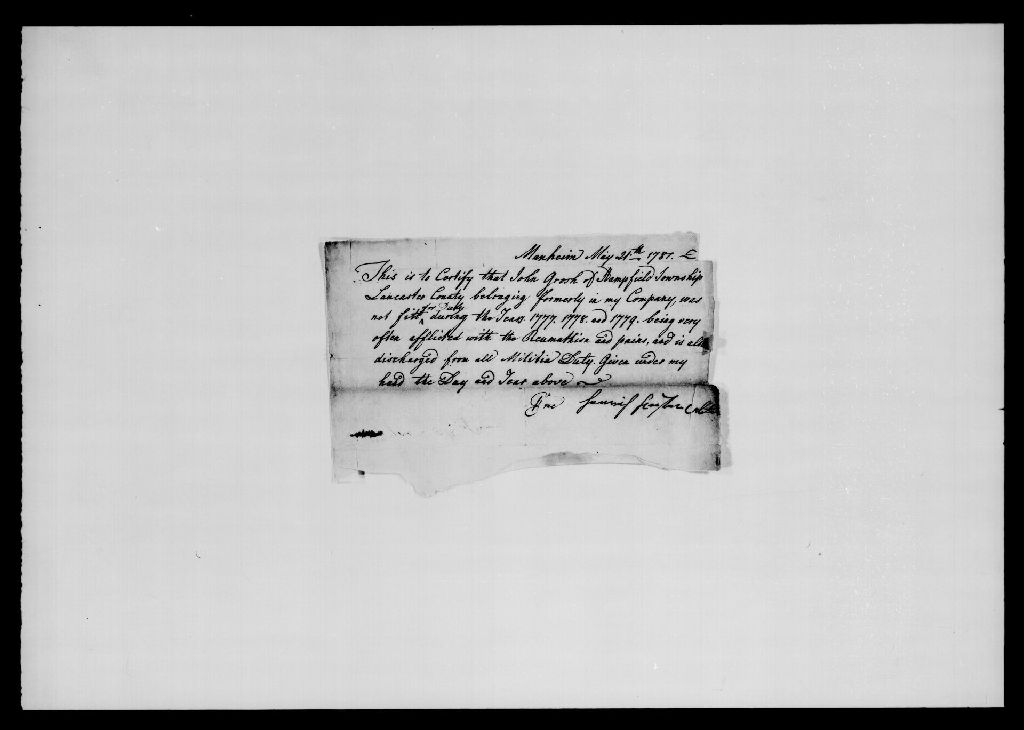 Manheim May 25th 1781.
This is to Certify that John Grosh of Hempfield Township
Lancaster County belonging formerly in my Company, was
not fitt for Duty during the Years 1777. 1778. and 1779. being very
often afflicted with the Reumathism and pains, and is all
discharged from all Militia Duty Given under my
hand the Day and Year above